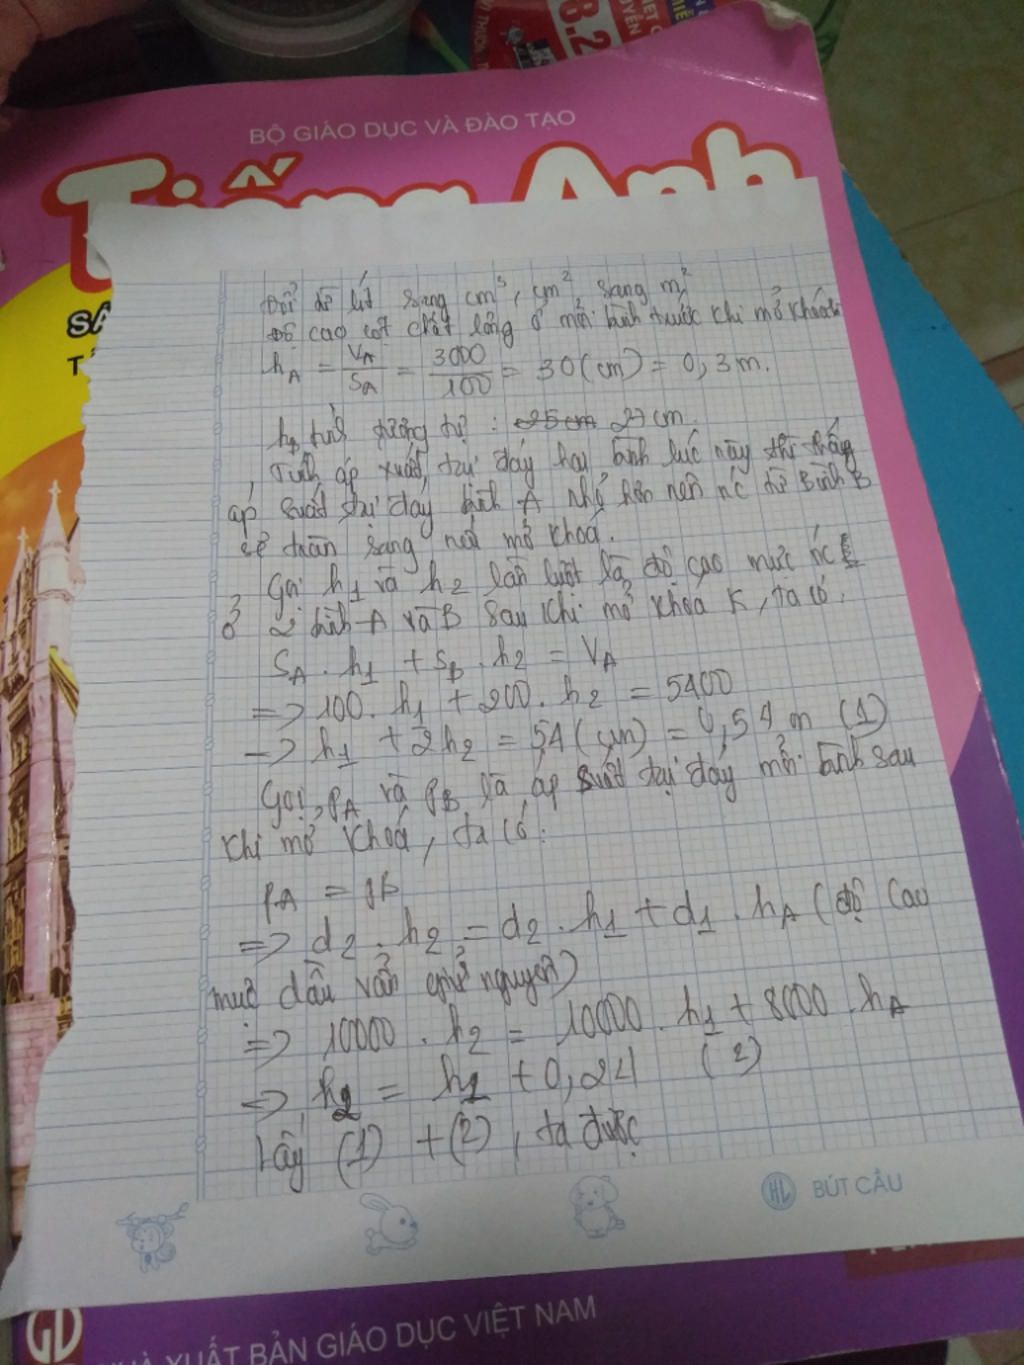 8.2
BỘ GIÁO DỤC VÀ ĐÀO TẠO
Tiếng Anh
Đổi từ lít sang cm³, cm² sang m²
Độ cao cột chất lỏng ở mỗi bình trước khi mở khoá
h_A = V_A/S_A = 3000/100 = 30(cm) = 0,3 m.
h_B tính tương tự : 27 cm.
Tính áp xuất tại đáy hai bình lúc này thì thấy
áp suất tại đáy bình A nhỏ hơn nên nc từ Bình B
sẽ tràn sang nếu mở khoá.
Gọi h1 và h2 lần lượt là độ cao mực nc
ở 2 bình A và B sau khi mở khoá K, ta có.
S_A . h1 + S_B . h2 = V_A
=> 100 . h1 + 200 . h2 = 5400
=> h1 + 2h2 = 54 (cm) = 0,54 m (1)
Gọi P_A và P_B là áp suất tại đáy mỗi bình sau
khi mở khoá, ta có :
P_A = P_B
=> d2 . h2 = d2 . h1 + d1 . h_A (độ cao
mực dầu vẫn giữ nguyên)
=> 10000 . h2 = 10000 . h1 + 8000 . h_A
=> h2 = h1 + 0,24 (2)
Lấy (1) + (2), ta được
HL BÚT CẦU
GD
NHÀ XUẤT BẢN GIÁO DỤC VIỆT NAM